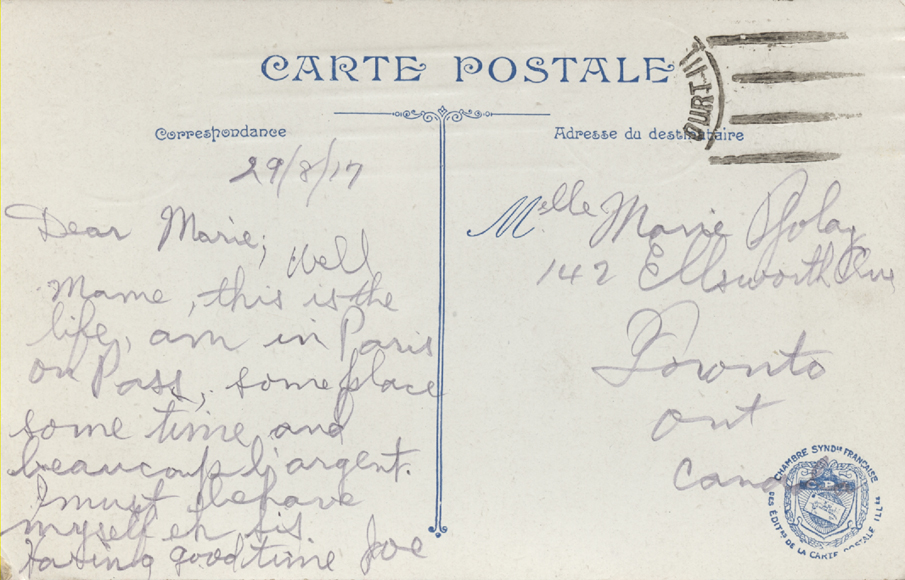 CARTE POSTALE
Correspondance
29/8/17
Dear Marie;
Well
Mame, this is the
life, am in Paris
on Pass, some place
some time and
beaucoup l'argent.
I must behave
myself eh sis
having good time Joe
Adresse du destinataire
Melle Marie
142 Ellsworth Ave
Toronto
Ont
Canada
CHAMBRE SYNDle FRANÇAISE
DES ÉDITrs DE LA CARTE POSTALE ILLrée